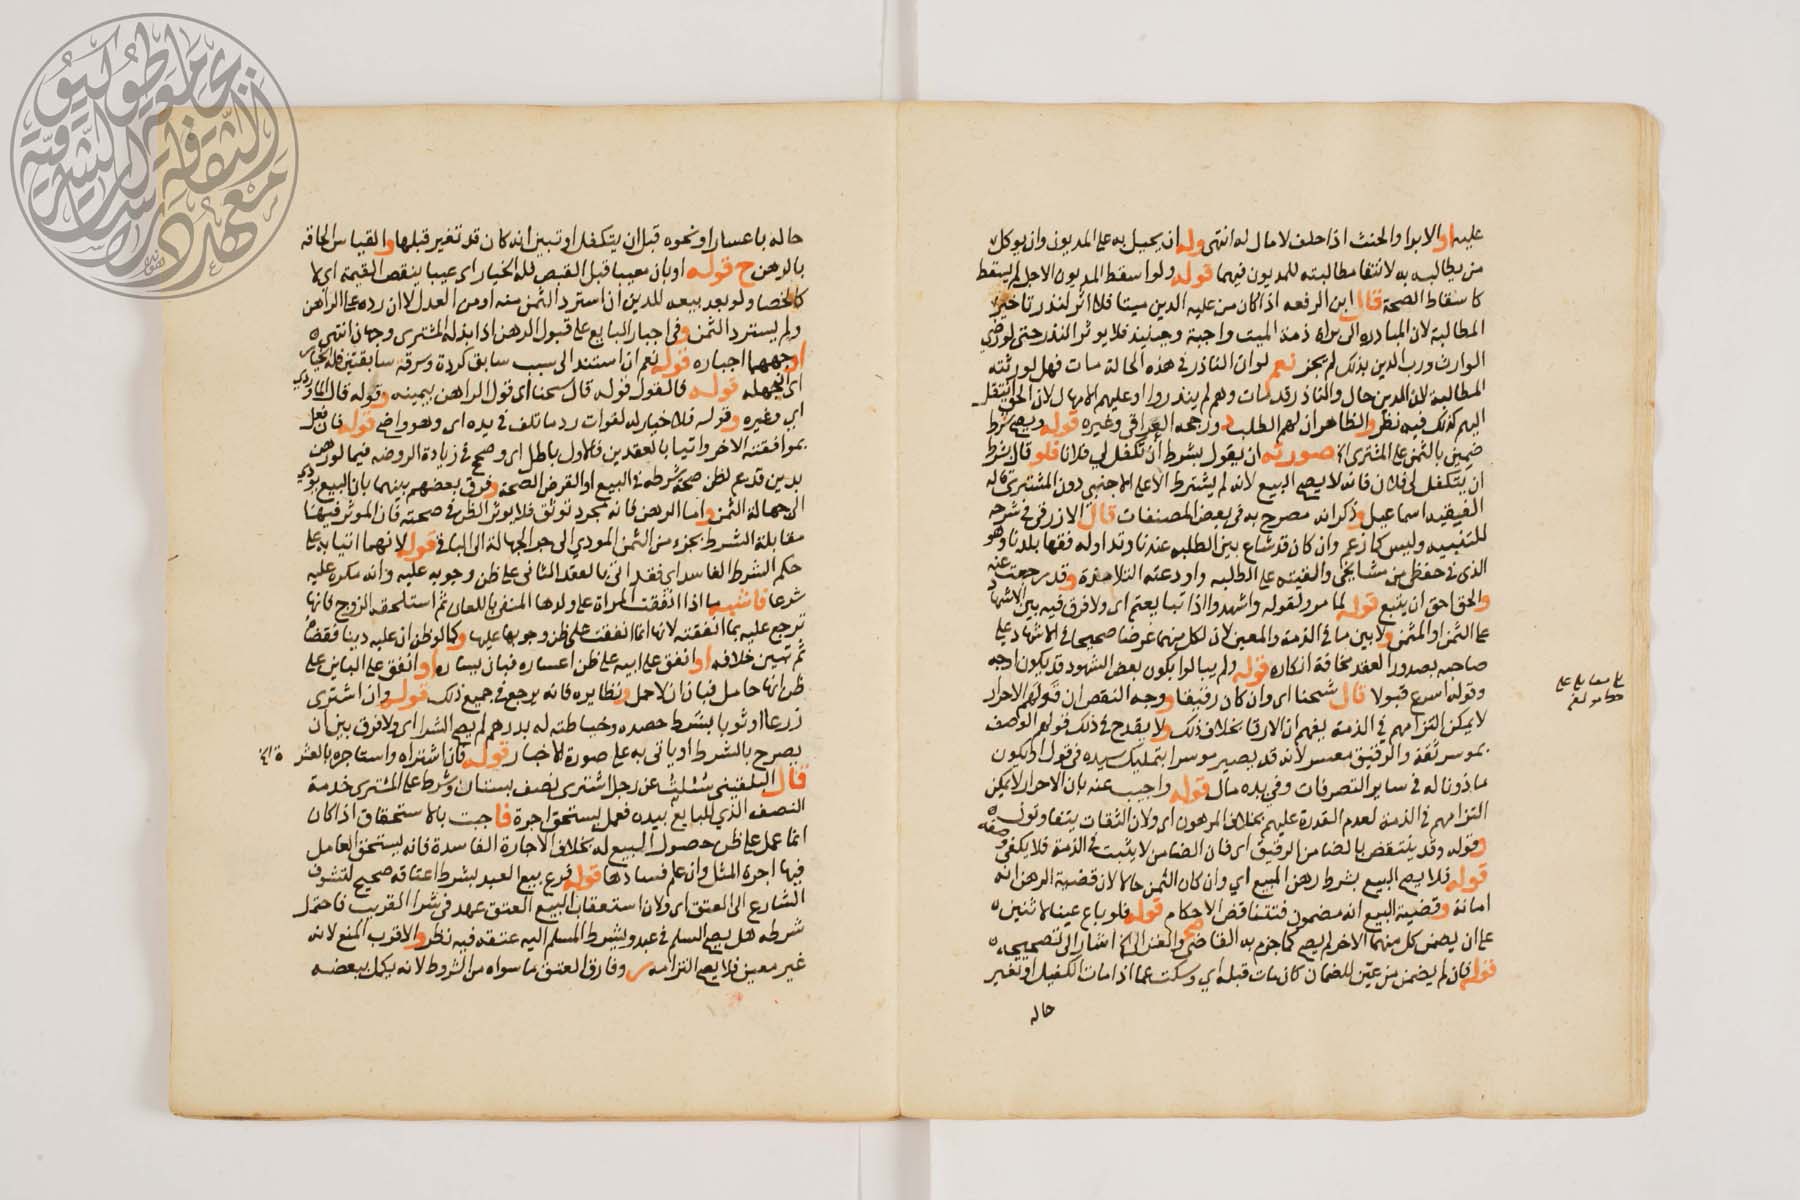 عليه او الابوا والحنث اذا حلف لا مال له انتهى وله ان يحيل به على المديون وان يوكل
من يطالبه به لانتفا مطالبته للمديون فيهما قوله ولو اسقط المديون الاجل لم يسقط
كاسقاط الصحة قال ابن الرفعه اذا كان من عليه الدين ميتا فلا اثر لنذر تاخير
المطالبة لان المبادره الى براة ذمة الميت واجبة وحينئذ فلا يوثر النذر حتى لو رضي
الوارث ورب الدين بذلك لم يجز نعم لو ان الناذر في هذه الحالة مات فهل لورثته
المطالبة لان الدين حال والناذر قد مات وهم لم ينذروا او عليهم الامهال لان الحق انتقل
اليهم كذلك فيه نظر والظاهر ان لهم الطلب ورجحه العراقي وغيره قوله ويصح بشرط
ضمين بالثمن على المشتري صورته ان يقول بشرط أن تكفل لي فلانا فلو قال بشرط
ان يتكفل لي فلان فانه لا يصح البيع لانه لم يشترط الا على الاجنبي دون المشتري قاله
الفقيه اسماعيل وذكر انه مصرح به في بعض المصنفات قال الازرقي في شرحه
للتنبيه وليس كما زعم وان كان قد شاع بين الطلبه عندنا وتداوله فقها بلدنا وهو
الذي في حفظي من مشايخي والقيته على الطلبه واودعته التلامذة وقد رجعت عنه
والحق احق ان يتبع قوله لما مر ولقوله واشهدوا اذا تبايعتم اي ولا فرق فيه بين الاشهاد
على الثمن او المثمن ولا بين ما في الذمة والمعين لان لكل منهما غرضا صحيحا في الاشهاد على
صاحبه بصدور العقد مخافة انكاره قوله ولم يبالوا بكون بعض الشهود قد يكون اوجه
وقوله اسرع قبولا قال شيخنا اي وان كان رقيقا ووجه النقص ان قولهم الاحرار
لا يمكن التزامهم في الذمة يفهم ان الارقا بخلاف ذلك ولا يقدح في ذلك قولهم الوصف
بموسر ثقة والرقيق معسر لانه قد يصير موسرا بتمليك سيده في قول او يكون
ماذونا له في ساير التصرفات وفي يده مال قوله واجيب عنه بان الاحرار لا يمكن
التزامهم في الذمة لعدم القدرة عليهم بخلاف المرهون اي ولان الثقات يتفاوتون
وقوله وقد ينتقض بالضامن الرقيق اي فان الضامن لا يثبت في الذمة فلا يكفي وصفه
قوله فلا يصح البيع بشرط رهن المبيع اي وان كان الثمن حالا لان قضية الرهن انه
امانة وقضية البيع انه مضمون فتتناقض الاحكام قوله فلو باع عينا لاثنين
على ان يضمن كل منهما الاخر لم يصح كما جزم به القاضي والغزالي اشار الى تصحيحه
قوله فان لم يضمن من عين للضمان كان مات قبله اي وسكت عما اذا مات الكفيل او تغير
حاله
حاله باعسار او نحوه قبل ان يتكفل او تبين انه كان قد تغير قبلها والقياس الحاقه
بالرهن ح قوله او بان معيبا قبل القبض فله الخيار اي عيبا ينقص القيمة اي لا
كالخصا ولو بعد بيعه للدين ان استرد الثمن منه او من العدل لا ان رده على الراهن
ولم يسترد الثمن وفي اجبار البايع على قبول الرهن اذا بذله المشتري وجهان انتهى
اوجههما اجباره قوله نعم ان استند الى سبب سابق كردة وسرقة سابقتين فله الخيار
اي لجهله قوله فالقول قوله قال شيخنا اي قول الراهن بيمينه وقوله قال الماوردي
اي وغيره وقوله فلا خيار له لفوات رد ما تلف في يده اي وهو واضح قوله فان فعل
بموافقة الاخر واتيا بالعقدين فالاول باطل اي وصحح في زيادة الروضه فيما لو رهن
بدين قديم لظن صحة شرطه في البيع او القرض الصحة وفرق بعضهم بينهما بان البيع يؤدي
الى جهالة الثمن واما الرهن فانه مجرد توثق فلا يوثر الظن في صحته فان الموثر فيهما
مقابلة الشرط بجزء من الثمن المودي الى جر الجهالة الى الباقي قوله لانهما اتيا به على
حكم الشرط الفاسد اي فقد اتى بالعقد الثاني على ظن وجوبه عليه وانه مكره عليه
شرعا فاشبه ما اذا انفقت المراة على ولدها المنفي باللعان ثم استلحقه الزوج فانها
ترجع عليه بما انفقته لانها انما انفقت على ظن وجوبها عليها وكما لو ظن ان عليه دينا فقضاه
ثم تبين خلافه او انفق على ابيه على ظن اعساره فبان يساره او انفق على الباين على
ظن انها حامل فبان ان لا حمل ونظايره فانه يرجع في جميع ذلك قوله وان اشترى
زرعا او ثوبا بشرط حصده وخياطته له بدرهم لم يصح الشرا اي ولا فرق بين ان
يصرح بالشرط او ياتي به على صورة الاخبار قوله فان اشتراه واستاجره بالعشر
قال البلقيني سئلت عن رجل اشترى نصف بستان وشرط على المشتري خدمة
النصف الذي للبايع بيده فعمل يستحق اجرة فاجبت بالاستحقاق اذا كان
انما عمل على ظن حصول البيع له بخلاف الاجارة الفاسدة فانه يستحق العامل
فيها اجرة المثل وان علم فسادها قوله فرع بيع العبد بشرط اعتاقه صحيح لتشوف
الشارع الى العتق اي ولان استعقاب البيع العتق عهد في شرا القريب فاحتمل
شرطه هل يصح السلم في عبد ويشرط المسلم اليه عتقه فيه نظر والاقرب المنع لانه
غير معين فلا يصح التزامه م ر وفارق العتق ما سواه من الشروط لانه يكمل ببعضه